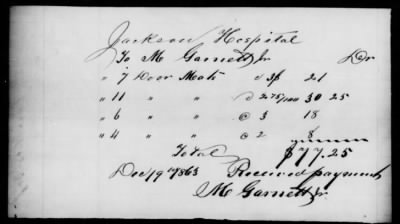 Jackson Hospital
To M Garnett Jr Dr
" 7 Door Mats @ 3$ 21
" 11 " " @ 2.75/100 30 25
" 6 " " @ 3 18
" 4 " " @ 2 8
Total $77.25
Dec 19th 1863 Received payment
M Garnett Jr